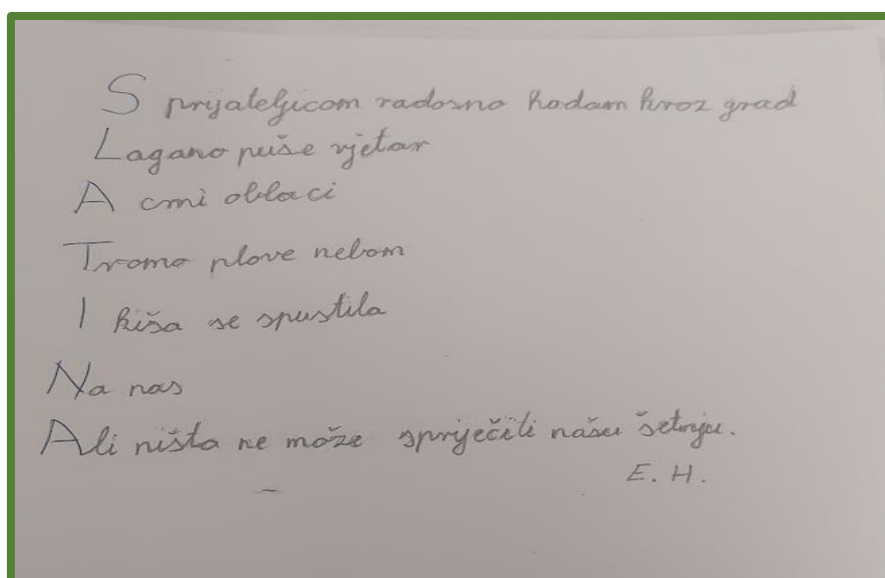 S prijateljicom radosno hodam kroz grad
Lagano puše vjetar
A crni oblaci
Tromo plove nebom
I kiša se spustila
Na nas
Ali ništa ne može spriječiti našu šetnju.
E. H.